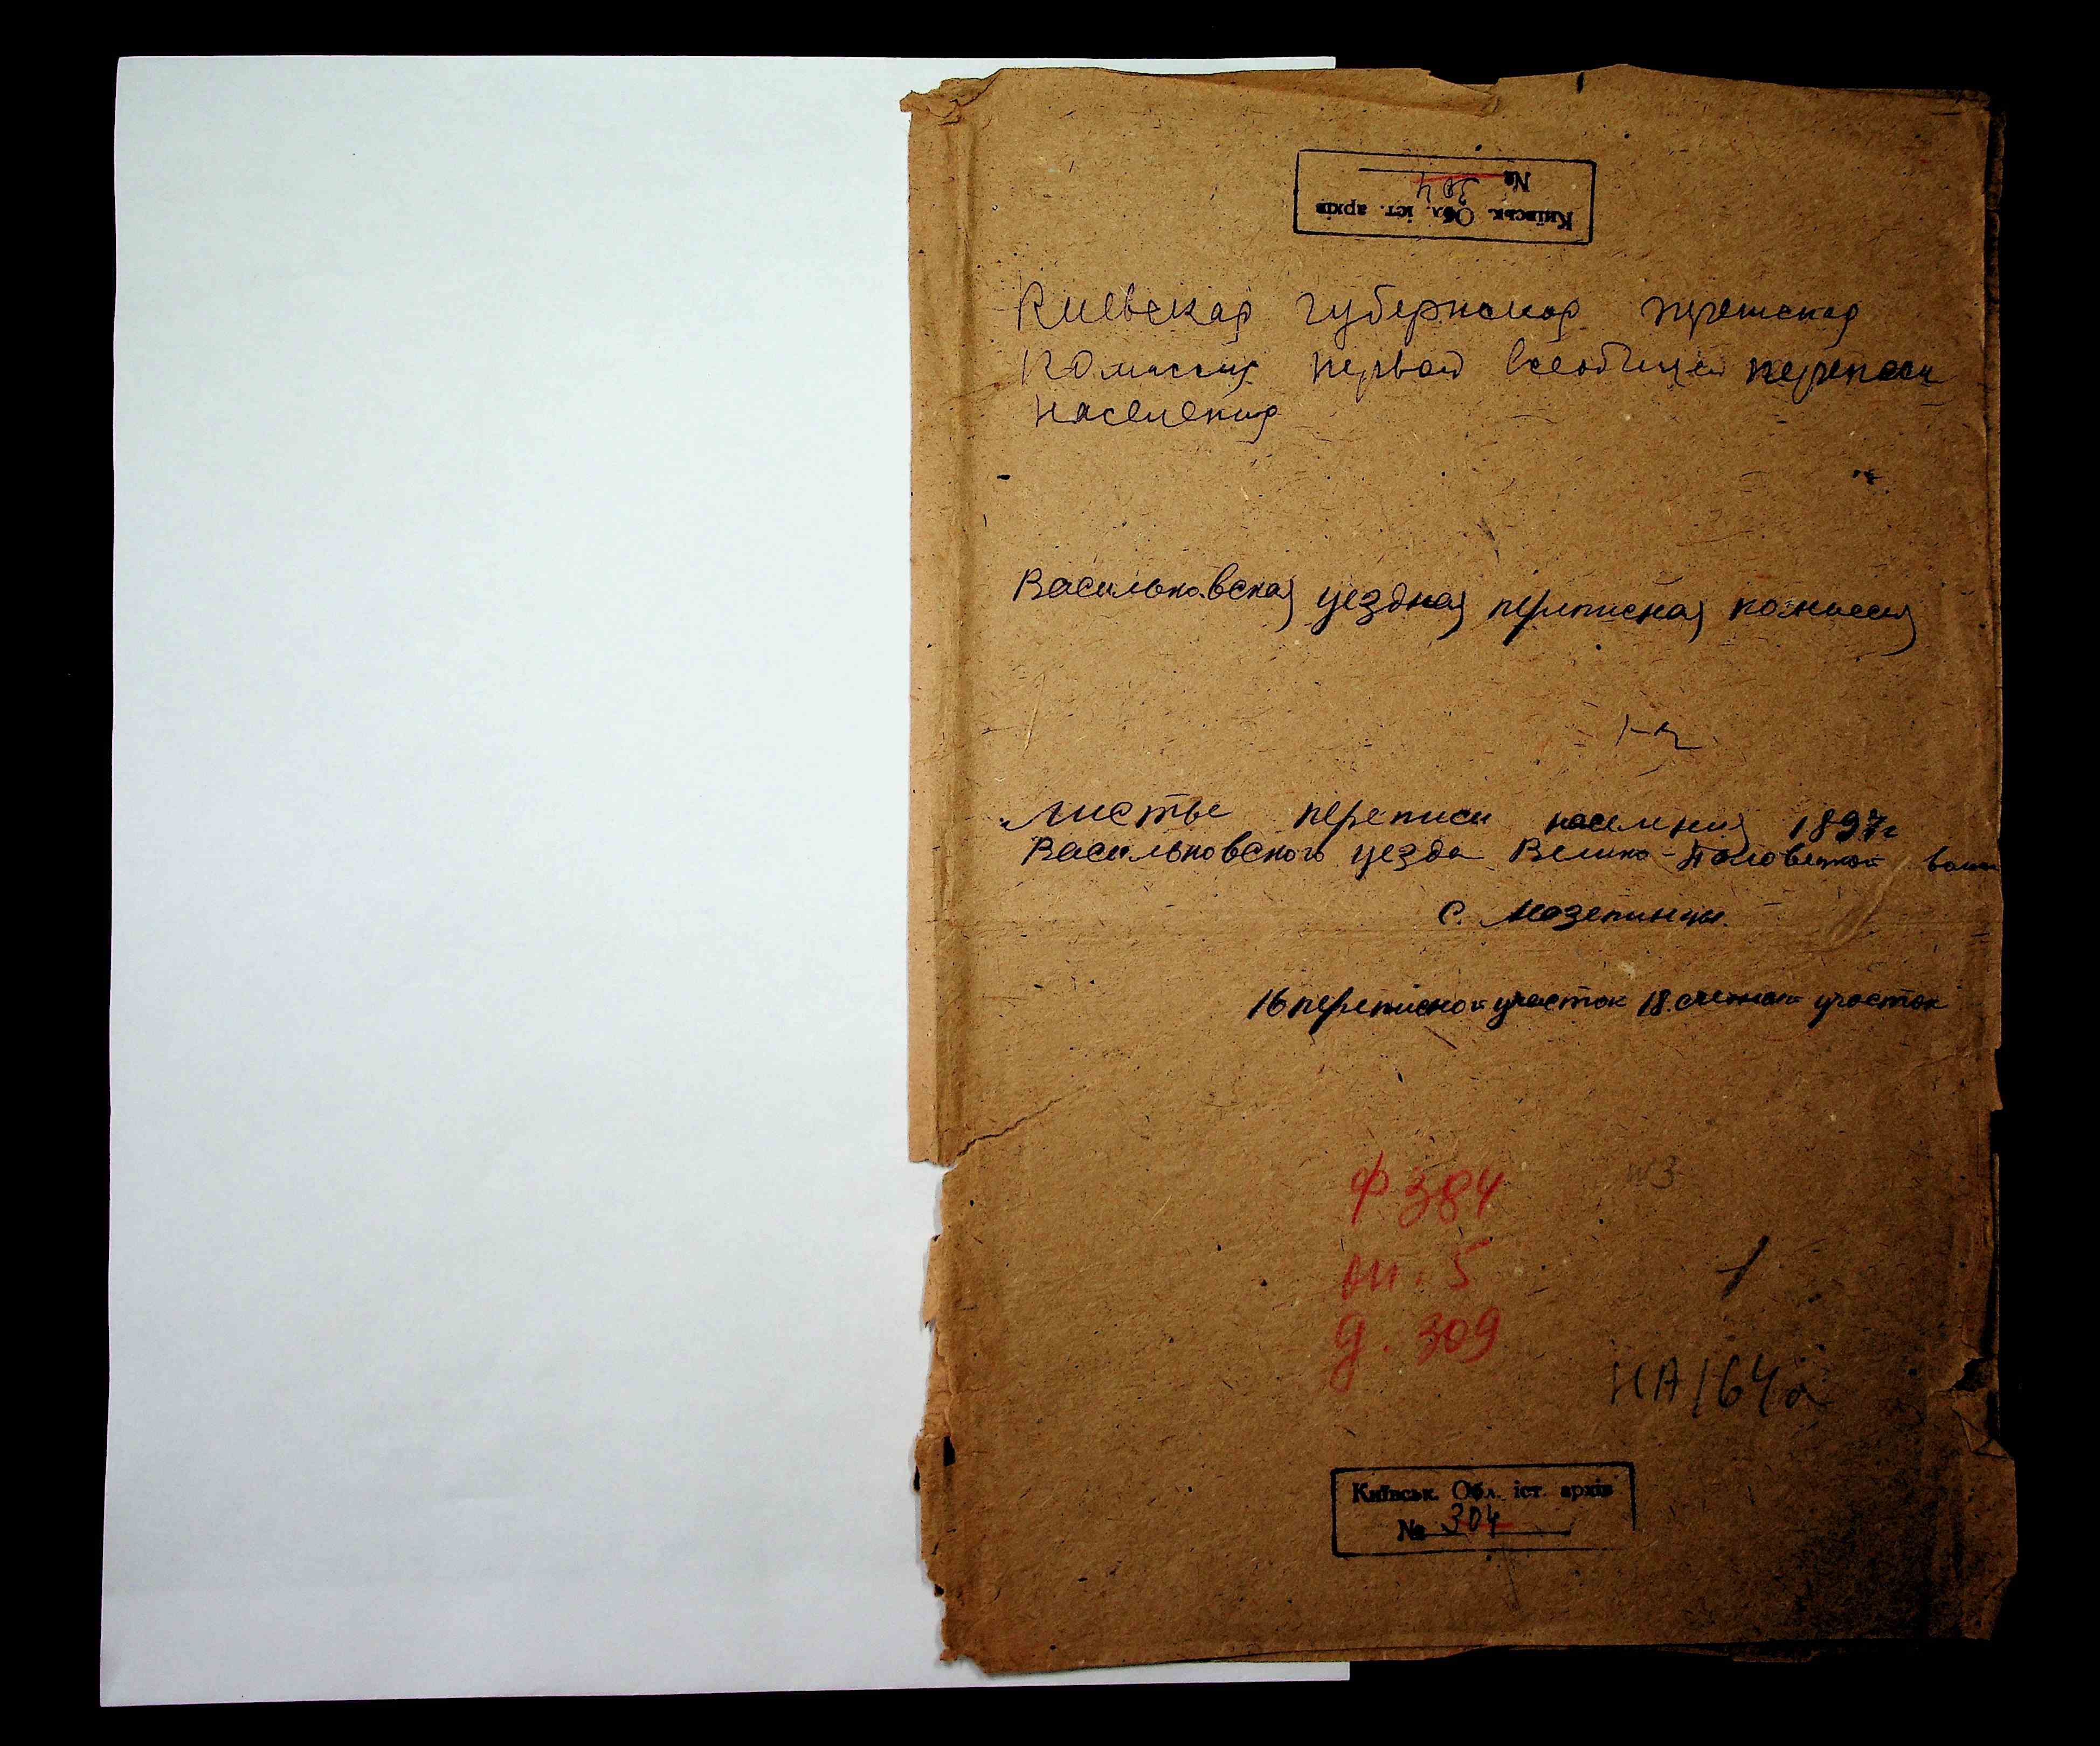 Київськ. Обл. іст. архів
№ 304
Киевская губернская переписная
комиссия первой всеобщей переписи
населения
Васильковская уездная переписная комиссия
Листы переписи населения 1897г
Васильковского уезда Велико-Половецкой вол
с. Мазепинцы.
16 переписной участок 18 счетный участок
Ф 384
оп. 5
д. 309
1
НА 164а
Київськ. Обл. іст. архів
№ 304